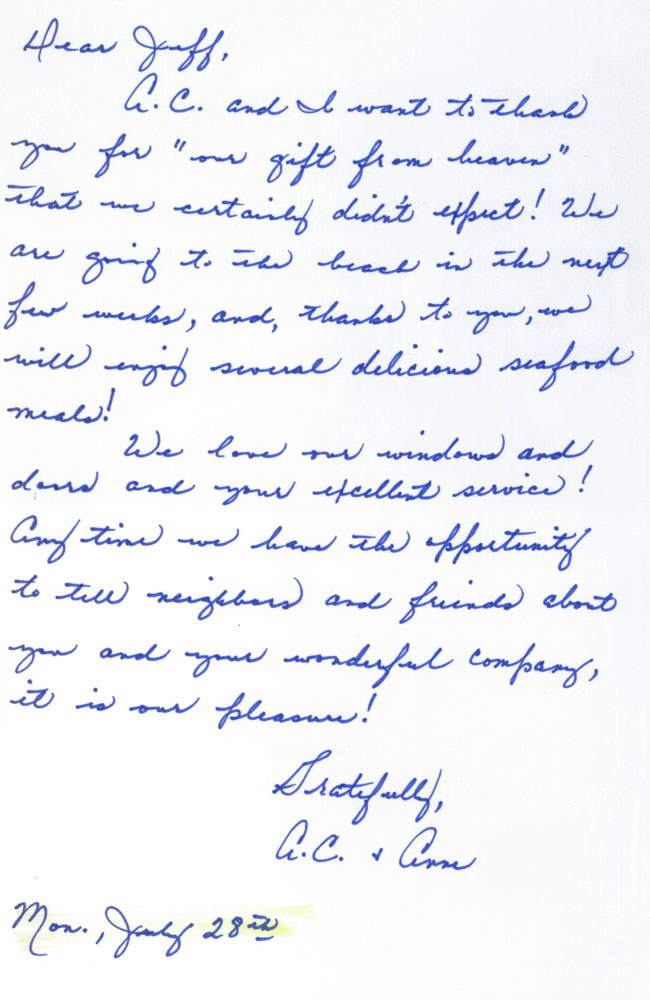 Dear Jeff,
A.C. and I want to thank
you for "our gift from heaven"
that we certainly didn't expect! We
are going to the beach in the next
few weeks, and, thanks to you, we
will enjoy several delicious seafood
meals!
We love our windows and
doors and your excellent service!
Any time we have the opportunity
to tell neighbors and friends about
you and your wonderful company,
it is our pleasure!
Gratefully,
A.C. + Anne
Mon., July 28th